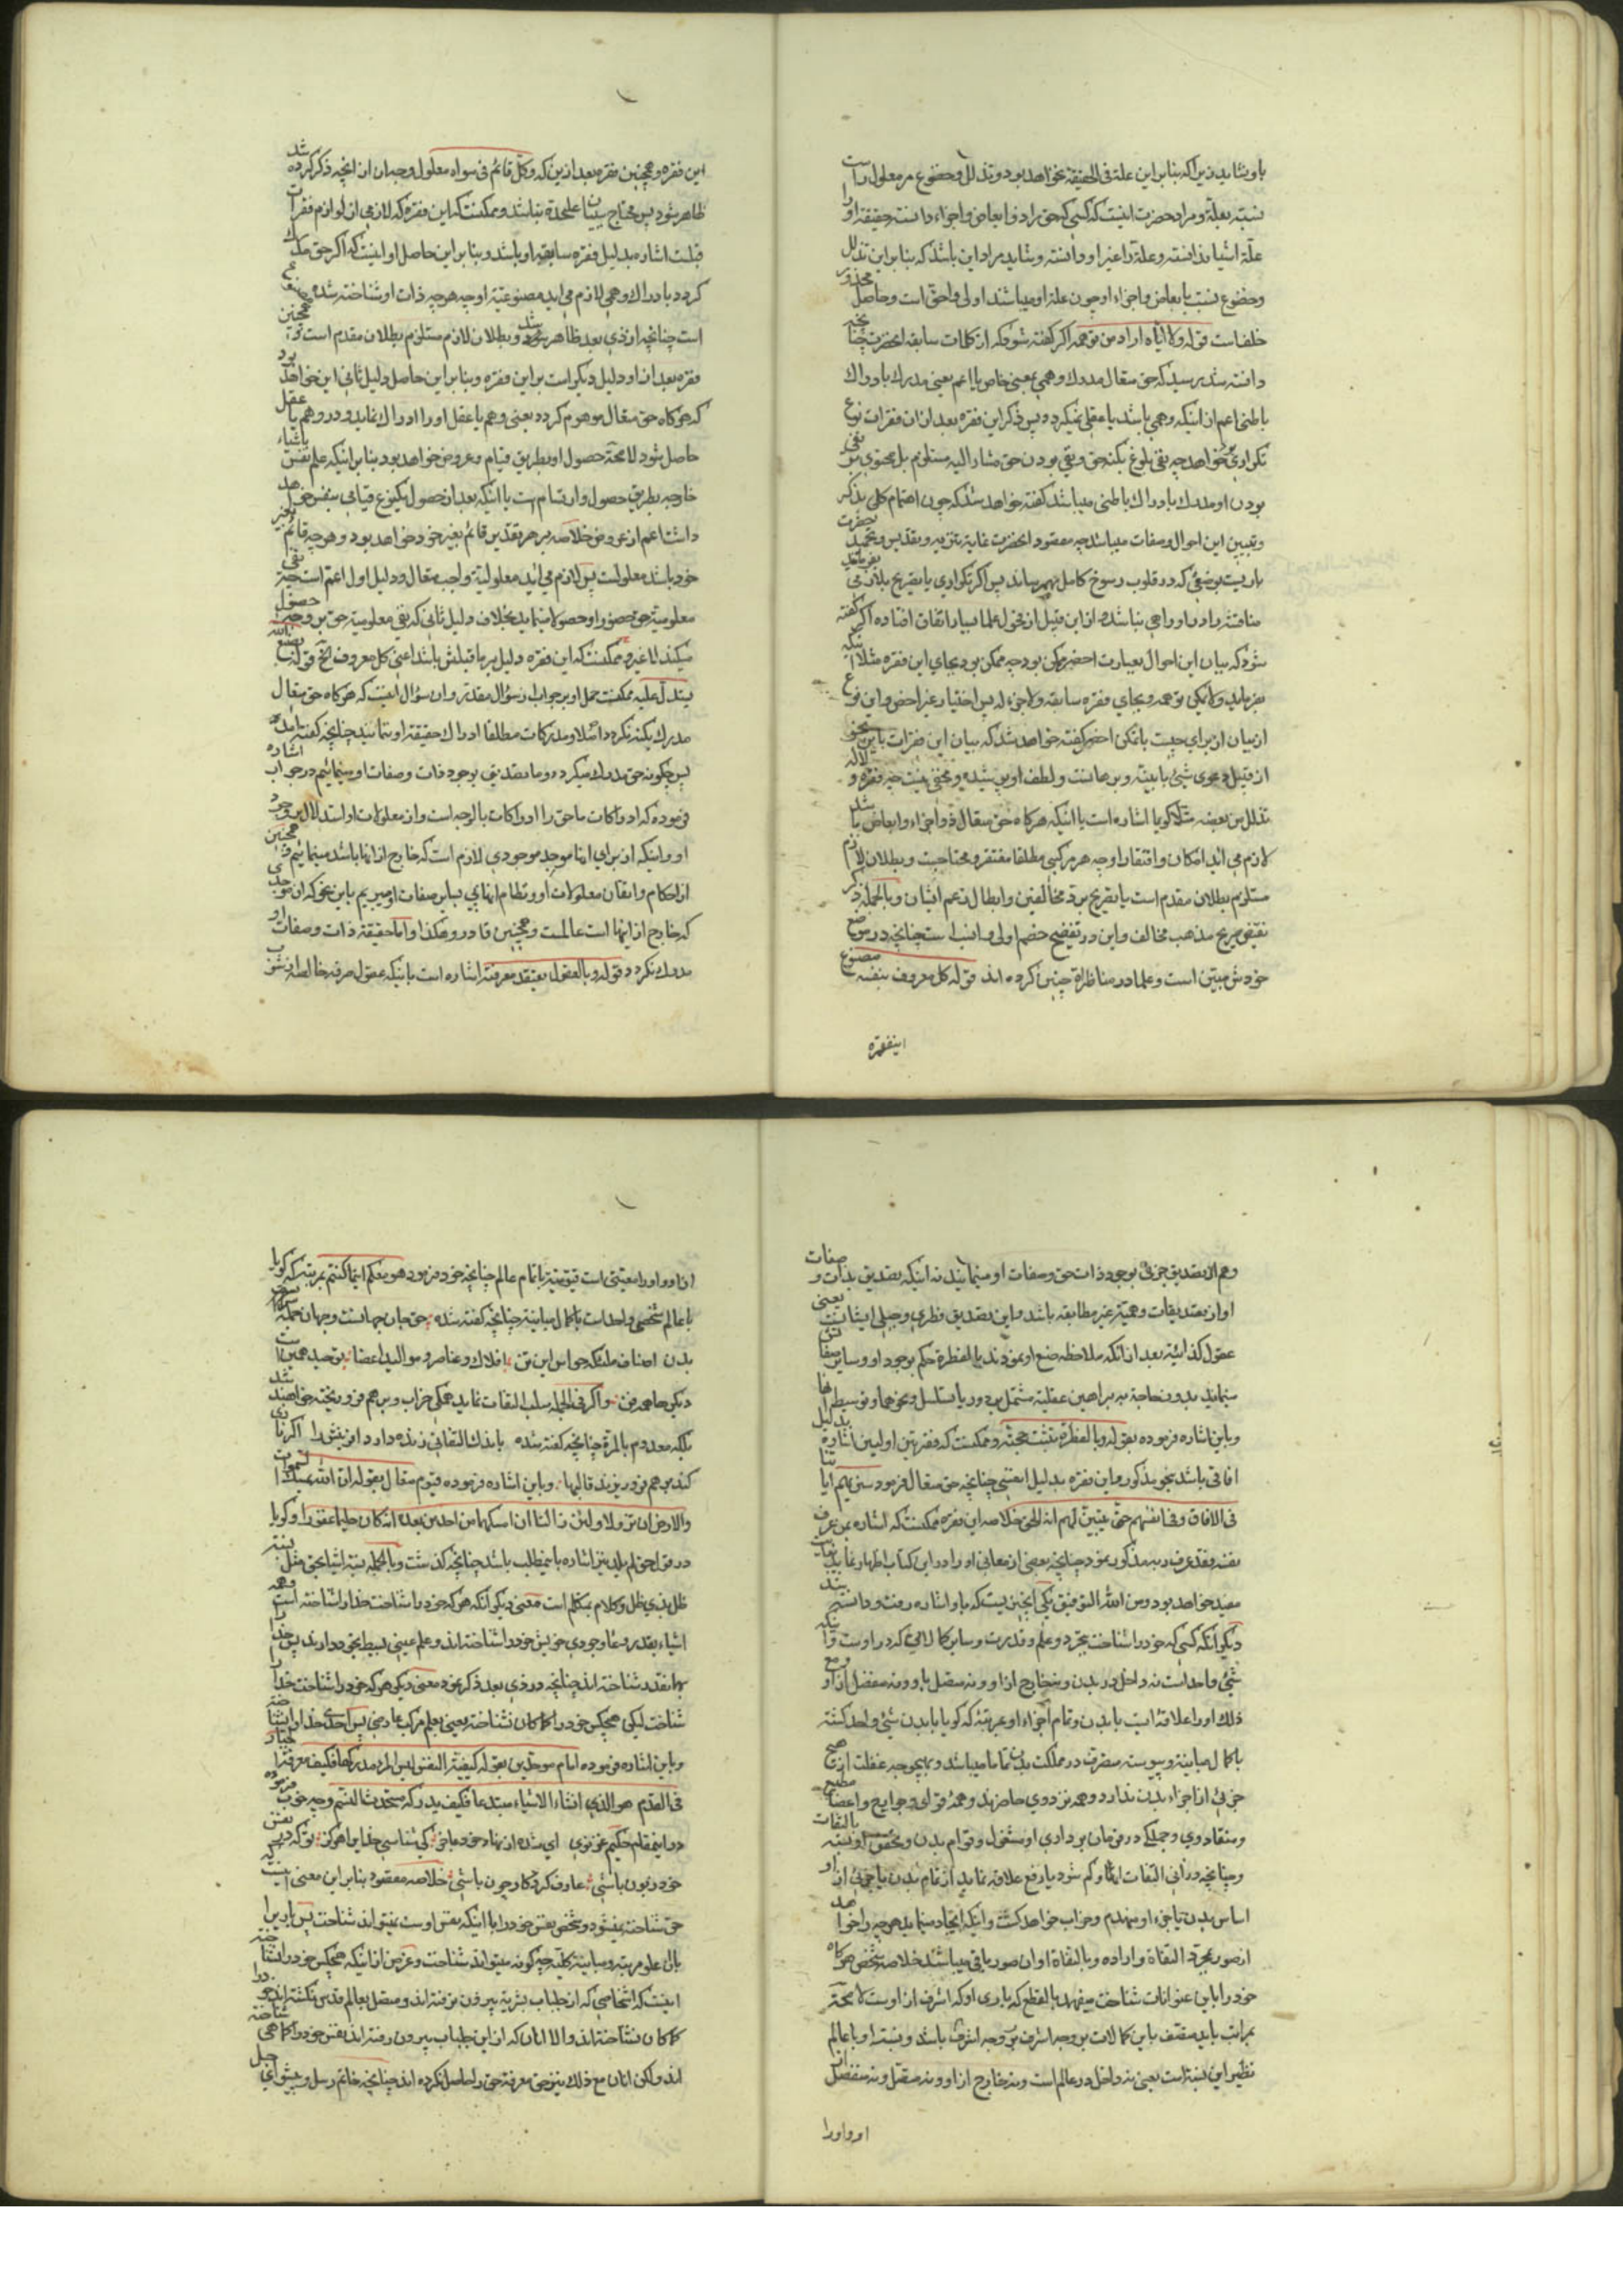 باو نشاید زیرا که بنابراین علة فی الحقیقة نخواهد بود و تذلل و خضوع مر معلول راست
نسبة بعلة و مراد حضرت اینست که کسی که حق را ذو ابعاض و اجزاء دانسته حقیقة او را
علة اشیا ندانسته و علة را غیر او دانسته و شاید مراد این باشد که بنابراین تذلل
و خضوع نسبت بابعاض و اجزاء او چون علة او میباشند اولی و احق است و حاصل
خلفاست قوله ولا ایاه اراد من توهمه اگر گفته شود که از کلمات سابقه آنحضرت چنانچه
دانسته شد رسید که حق متعال مدرک وهمی بمعنی خاص یا اعم یعنی مدرک بادراک
باطنی اعم از اینکه وهمی باشد یا عقلی نمیگردد پس ذکر این فقره بعد از آن فقرات نوع
تکراری خواهد چه نفی بلوغ بکنه حق و نفی بودن حق مشار الیه مستلزم بل محتوی بر نفی
بودن او مدرک بادراک باطنی میباشد گفته خواهد شد که چون اهتمام کلی بذکر
و تبیین این احوال و صفات میباشد چه مقصود آنحضرت غایة تنزیه و تقدیس و تمجید حضرت
باریست بوضعی که در قلوب رسوخ کامل بهم رساند پس اگر تکراری یا تصریح بلازمی
مناقشه دادن او را جی نباشد و از این قبیل از فحول علما بسیار اتفاق افتاده اگر گفته
شود که بیان این احوال بعبارت اخصر ممکن بود چه ممکن بود بجای این فقره مثلا اینکه
بفرماید ولا یمکن توهمه و بجای فقره سابقه ولا جزء له پس اختیار غیر اخص و این نوع
از بیان از برای چیست با تمکن اخصر گفته خواهد شد که بیان این فقرات باین نحو
از قبیل دعوی شیئ با بینه و برهانست و لطف او پوشیده و مخفی نیست چه فقره و لا له
تذلل من بعضه مثلا گویا اشاره است باینکه هرگاه حق متعال ذو اجزاء و ابعاض باشد
لازم می آید امکان و افتقار او چه هر مرکبی مطلقا مفتقر و محتاجست و بطلان لازم
مستلزم بطلان مقدم است با تصریح برد مخالفین و ابطال زعم ایشان و بالجمله ذکر
نقیض صریح مذهب مخالف و این در تفضیح خصم اولی و انسب است چنانچه در موضع
خودش مبین است و علما در مناظرة چنین کرده اند قوله کل معروف بنفسه مصنوع
اینفقره
این فقره و همچنین فقره بعد از این که و کل قائم فی سواه معلول وجهان از آنچه ذکر کرده شد
ظاهر شود پس محتاج ببیان علیحدة نباشد و ممکنست که این فقره که لازمی از لوازم فقرات
قبلست اشاره بدلیل فقره سابقه او باشد و بنابراین حاصل او اینست که اگر حق مدرک
گردد بادراک وهمی لازم می آید مصنوعیة او چه هر چه ذات او شناخته شده مصنوع
است چنانچه از ذی بعد ظاهر شود و بطلان لازم مستلزم بطلان مقدم است و همچنین
فقره بعد از او دلیل دیگر است بر این فقره و بنابراین حاصل دلیل ثانی این خواهد بود
که هرگاه حق متعال موهوم گردد یعنی وهم یا عقل او را ادراک نماید و در وهم یا عقل
حاصل شود لا محة حصول او بطریق قیام و عروض خواهد بود بنابر اینکه علم نفس باشیاء
خارجه بطریق حصول و ارتسام است یا اینکه بعد از حصول یکنوع قیامی بنفس خواهد
داشت اعم از عروض خلاصه بر هر تقدیر قائم بغیر خود خواهد بود و هر چه قائم بغیر
خود باشد معلولست پس لازم می آید معلولیة واجب متعال و دلیل اول اعم است چه نفی
معلومیة حق حضورا و حصولا مینماید بخلاف دلیل ثانی که نفی معلومیة حق بر وجه حصول
میکند لا غیر و ممکنست که این فقره دلیل بر ما قبلش باشد اعنی کل معروف الخ قوله بصنع الله
یستدل علیه ممکنست حمل او بر جواب از سؤال مقدر و آن سؤال اینست که هرگاه حق متعال
مدرک بکنه نگردد اصلا و مدرکات مطلقا ادراک حقیقة او نتمانند چنانچه گفته آمد
پس چگونه حق مدرک میگردد و ما تصدیق بوجود ذات و صفات او مینمائیم در جواب اشاره
فرموده که ادراکات ما حق را ادراکات بالوجه است و از معلولات او استدلال بر وجود
او و اینکه از برای آنها موجد موجودی لازم است که خارج از آنها باشد مینمائیم و همچنین
از احکام و اتقان معلولات او و نظام آنها پی بسایر صفات او میبریم باین نحو که آن موجدی
که خارج از اینها است عالمست و همچنین قادر و هکذا و اما حقیقة ذات و صفات او
مدرک نگردد قوله و بالعقول یعتقد معرفته اشاره است باینکه عقول صرفه خالصه از شوب
و هم از تصدیق جزمی بوجود ذات حق و صفات او مینمایند نه اینکه تصدیق بذات و صفات
او از تصدیقات وهمیة غیر مطابقه باشد و این تصدیق فطری و جبلی ایشانست یعنی
عقول کذائیه بعد از آنکه ملاحظه صنع او نمودند بالفطرة حکم بوجود او و سایر صفاتش
مینمایند بدون حاجة به براهین عقلیة مشتمل بر دور یا تسلسل و نحوهما و توسیط آنها
و باین اشاره فرموده بقوله و بالفطرة تثبت حجته و ممکنست که فقرتین اولیین اشاره بدلیل
آفاقی باشد بنحو مذکور و این فقره بدلیل انفسی چنانچه حق متعال فرمود سنریهم آیاتنا
فی الافاق و فی انفسهم حتی یتبین لهم انه الحق خلاصه این فقره ممکنست که اشاره بمن عرف
نفسه فقد عرف ربه مذکور نمود چنانچه بعضی از معانی او را در این کتاب اظهار نماید بغایت
مفید خواهد بود و من الله التوفیق یکی اینجنین بیست که باو اشاره رفت و دانسته شد
دیگر آنکه کسی که خود را شناخت بتجرد و علم و قدرت و سایر کمالاتی که در اوست و آنکه
شیئ واحد است نه داخل در بدن و نه خارج از او و نه متصل باو و نه منفصل از او و مع
ذلک او را علاقه ایست با بدن و تمام اجزاء او بمرتبه که گویا با بدن شیئ واحد گشته
با کمال مباینة و پیوسته متصرف در مملکت بدن تماما میباشد و بهیچوجه غفلت از هیچ
جزئی از اجزاء بدن ندارد و همه نزد وی حاضرند و همه قوای و جوارح و اعضا مطیع
و منقاد وی و جملگی در فرمان برداری او مشغول و قوام بدن و تحقق او نسبه بالتفات
و چنانچه در آنی التفات آنها و کم شود یا رفع علاقه نماید از تمام بدن یا جزئی از او
اساس بدن یا جزء او منهدم و خراب خواهد گشت و اینکه ایجاد مینماید هر چه را خواهد
از صور بمجرد التفاة و اراده و بالتفاة او آن صور باقی میباشند خلاصه شخص هرگاه
خود را باین عنوانات شناخت میفهمد بالقطع که باری او که اشرف از اوست لا محة
بمراتب باید متصف باین کمالات بر وجه اشرف بر وجه اشرف باشد و نسبت او با عالم
نظیر این نسبة است یعنی نه داخل در عالم است و نه خارج از او و نه متصل و نه منفصل از
او و او را
از او و او را معیتی است قیومیة با تمام عالم چنانچه خود فرمود هو معکم اینما کنتم بمرتبه که گویا
با عالم شخصی واحد است با کمال مباینة چنانچه گفته شده حق جان جهانست و جهان جمله
بدن اصناف ملئکه حواس این تن افلاک و عناصر و موالید اعضا توحید همین است
دیگرها همه فن و اگر فی الجمله سلب التفات نماید همگی خراب و برهم فرو ریخته خواهند شد
بلکه معدوم بالمرة چنانچه گفته شده باندک التفاتی زنده دارد آفرینش را اگر نازی
کند برهم فرو ریزند قالبها و باین اشاره فرموده قیوم متعال بقوله ان الله یمسک السموات
والارض ان تزولا ولئن زالتا ان امسکهما من احد من بعده انه کان حلیما غفورا و گویا
در قول حق لم یلد نیز اشاره باینمطلب باشد چنانچه گذشت و بالجمله نسبة اشیا بحق مثل نسبة
ظل بذی ظل و کلام بمتکلم است معنی دیگر آنکه هر که خود را شناخت خدا را شناخته است و همه
اشیاء بقدر وعاء وجودی خویش خود را شناخته اند و علم عینی بسیط بخود دارند پس خدا را
بهمانقدر شناخته اند چنانچه در ذی بعد ذکر نمود معنی دیگر هر که خود را شناخت خدا را
شناخت لیکن هیچکس خود را کما کان نشناخته یعنی بعلم مرکب عارضی پس احدی خدا را نشناخته
و باین اشاره فرموده امام موحدین بقوله کیفیة النفس لیس المرء مدرکها فکیف معرفة الجبار
فی القدم هو الذی انشاء الاشیاء مبتدعا فکیف یدرکه مستحدث النسم و چه خوب فرموده
در اینمقام حکیم غزنوی ای شده از نهاد خود عاجز کی شناسی خدایرا هرگز تو که در نفس
خود زبون باشی عارف کردگار چون باشی خلاصه مقصود بنابراین معنی اینست که
حق شناخته نمیشود و شخص نفس خود را با اینکه نفس اوست نمیتواند شناخت پس باریرا
با آن علو مرتبه و مباینة بکلیه چگونه میتواند شناخت و غرض از اینکه هیچکس خود را نشناخته
اینست که اشخاصی که از جلباب بشریة بیرون نرفته اند و متصل بعالم قدس نگشته اند خود را
کما کان نشناخته اند والا آنان که از این جلباب بیرون رفته اند نفس خود را کما هی شناخته
اند ولکن آنان مع ذلک نیز حق معرفة حق را حاصل نکرده اند چنانچه خاتم رسل و پیشوای سبل